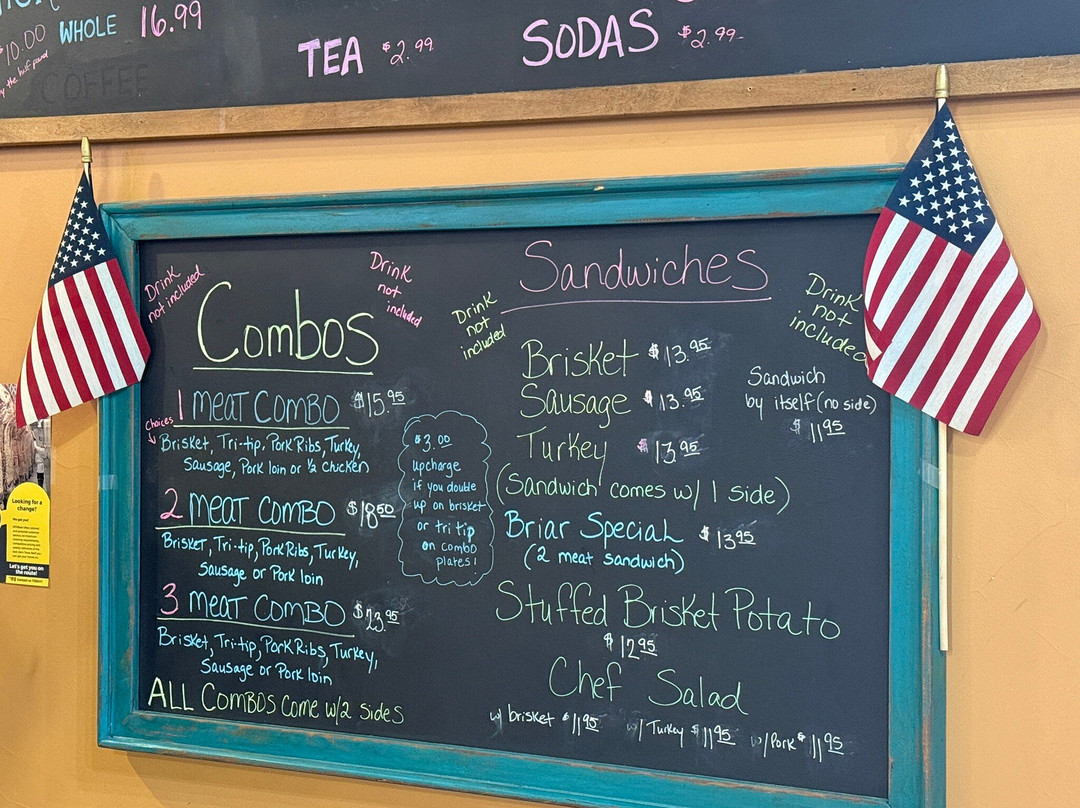 $10.00 WHOLE 16.99
by the half pound
COFFEE
TEA $2.99
SODAS $2.99
Drink
not included
Drink
not
included
Combos
1 MEAT COMBO $15.95
Choices
Brisket, Tri-tip, Pork Ribs, Turkey,
Sausage, Pork loin or ½ Chicken
2 MEAT COMBO $18.50
Brisket, Tri-tip, Pork Ribs, Turkey,
Sausage or Pork loin
3 MEAT COMBO $23.95
Brisket, Tri-tip, Pork Ribs, Turkey,
Sausage or Pork loin
ALL COMBOS COME W/2 SIDES
$3.00
upcharge
if you double
up on brisket
or tri tip
on combo
plates!
Sandwiches
Drink
not
included
Drink
not
included
Brisket $13.95
Sausage $13.95
Turkey $13.95
(Sandwich comes w/ 1 side)
Sandwich
by itself (no side)
$11.95
Briar Special $13.95
(2 meat sandwich)
Stuffed Brisket Potato
$12.95
Chef Salad
w/ brisket $11.95 w/ Turkey $11.95 w/ Pork $11.95
Looking for a
change?
Let's get you on
the route!